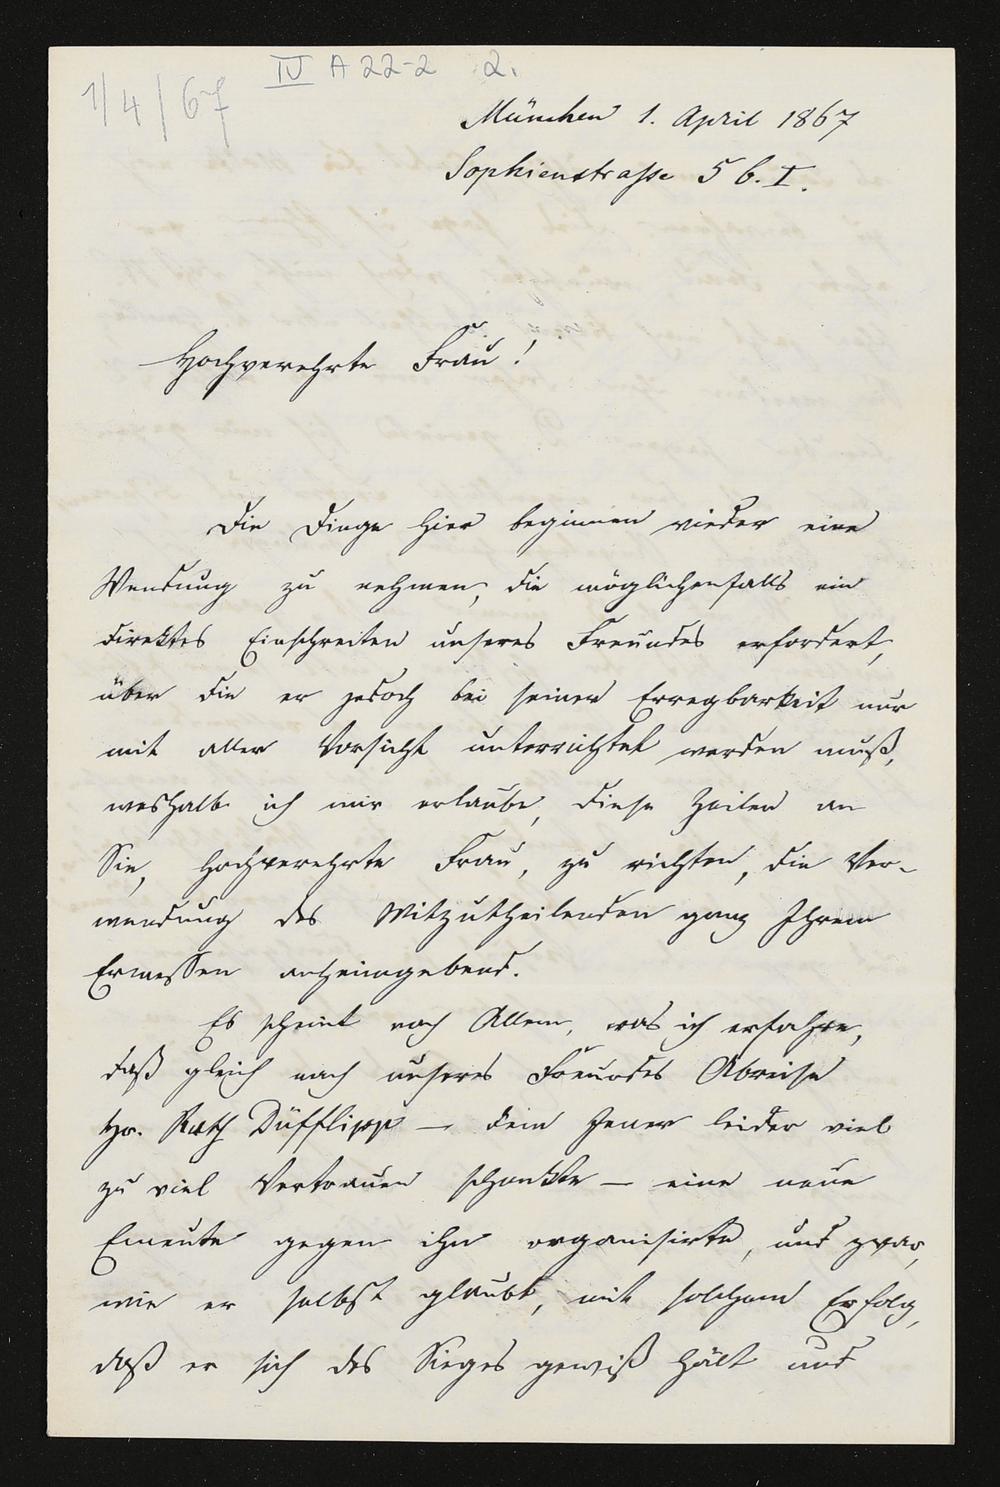 1/4/67
IV A 22-2 2.
München 1. April 1867
Sophienstrasse 5 b. I.
Hochverehrte Frau!
Die Dinge hier beginnen wieder eine
Wendung zu nehmen, die möglichenfalls ein
direktes Einschreiten unseres Freundes erfordert,
über die er jedoch bei seiner Erregbarkeit nur
mit aller Vorsicht unterrichtet werden muß,
weshalb ich mir erlaube, diese Zeilen an
Sie, hochverehrte Frau, zu richten, die Ver-
wendung des Mitzutheilenden ganz Ihrem
Ermessen anheimgebend.
Es scheint nach Allem, was ich erfahre,
daß gleich nach unseres Freundes Abreise
Hr. Rath Düfflipp — dem Jener leider viel
zu viel Vertrauen schenkte — eine neue
Emeute gegen ihn organisirte, und zwar,
wie er selbst glaubt, mit solchem Erfolg,
daß er sich des Sieges gewiß hält und